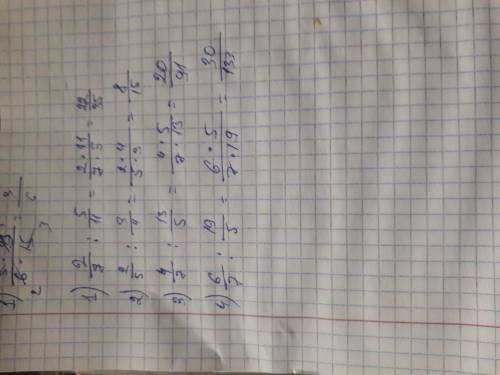 1) 2/7 : 5/11 = 2·11/7·5 = 22/35
2) 2/5 : 3/4 = 2·4/5·3 = 8/15
3) 4/7 : 13/5 = 4·5/7·13 = 20/91
4) 6/7 : 19/5 = 6·5/7·19 = 30/133